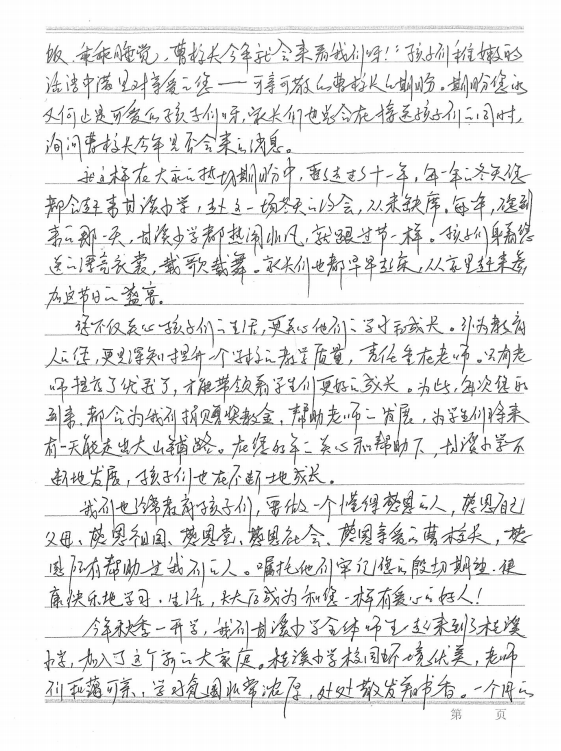 饭、乖乖睡觉，曹校长今年就会来看我们呀！”孩子们稚嫩的
话语中满是对亲爱的您——可亲可敬的曹校长的期盼。期盼您的
又何止是可爱的孩子们呀，家长们也总会在接送孩子们的同时，
询问曹校长今年是否会来的消息。
就这样在大家的热切期盼中，走过了十一年，每一年的冬天您
都会赶来甘溪小学，赴这一场冬天的约会，从未缺席。每年，您到
来的那一天，甘溪小学都热闹非凡，就跟过节一样。孩子们身着您
送的漂亮衣裳，载歌载舞。家长们也都早早赶来，从家里赶来参
加这节日的盛宴。
您不仅关心孩子们的生活，更关心他们的学习和成长。身为教育
人的您，更是深知提升一个学校的教学质量，责任重在老师。只有老
师提高了优秀了，才能带领着学生们更好的成长。为此，每次您的
到来，都会为我们捐赠奖教金，帮助老师的发展，为学生们将来
有一天能走出大山铺路。在您的年年关心和帮助下，甘溪小学不
断地发展，孩子们也在不断地成长。
我们也经常教育孩子们，要做一个懂得感恩的人，感恩自己
父母、感恩祖国、感恩党、感恩社会、感恩亲爱的曹校长，感
恩所有帮助过我们的人。嘱托他们牢记您的殷切期望，健
康快乐地学习、生活，长大后成为和您一样有爱心的好人！
今年秋季一开学，我们甘溪小学全体师生一起来到了桂溪
小学，加入了这个新的大家庭。桂溪小学校园环境优美，老师
们和蔼可亲，学习氛围非常浓厚，处处散发着书香。一个月的
第 页